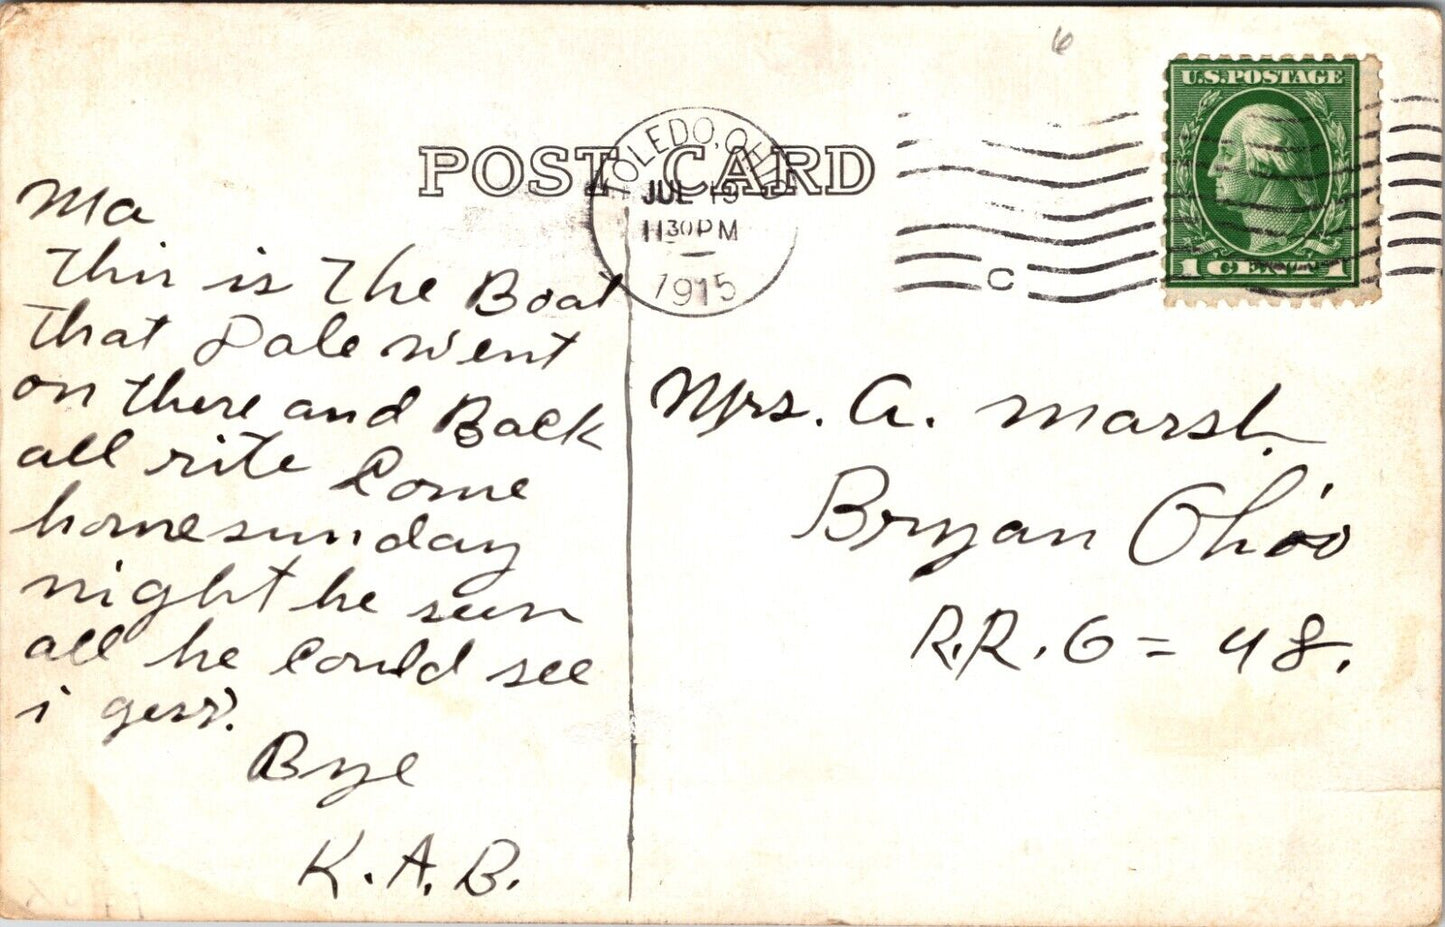 6
U.S.POSTAGE
1 CENT 1
POST CARD
TOLEDO, OHIO
JUL 19
11 30 PM
1915
C
Ma
This is The Boat
that Dale went
on there and Back
all rite Come
home sunday
night he seen
all he could see
i gess.
Bye
K.A.B.
Mrs. A. Marsh
Bryan Ohio
R.R. 6 = 48.